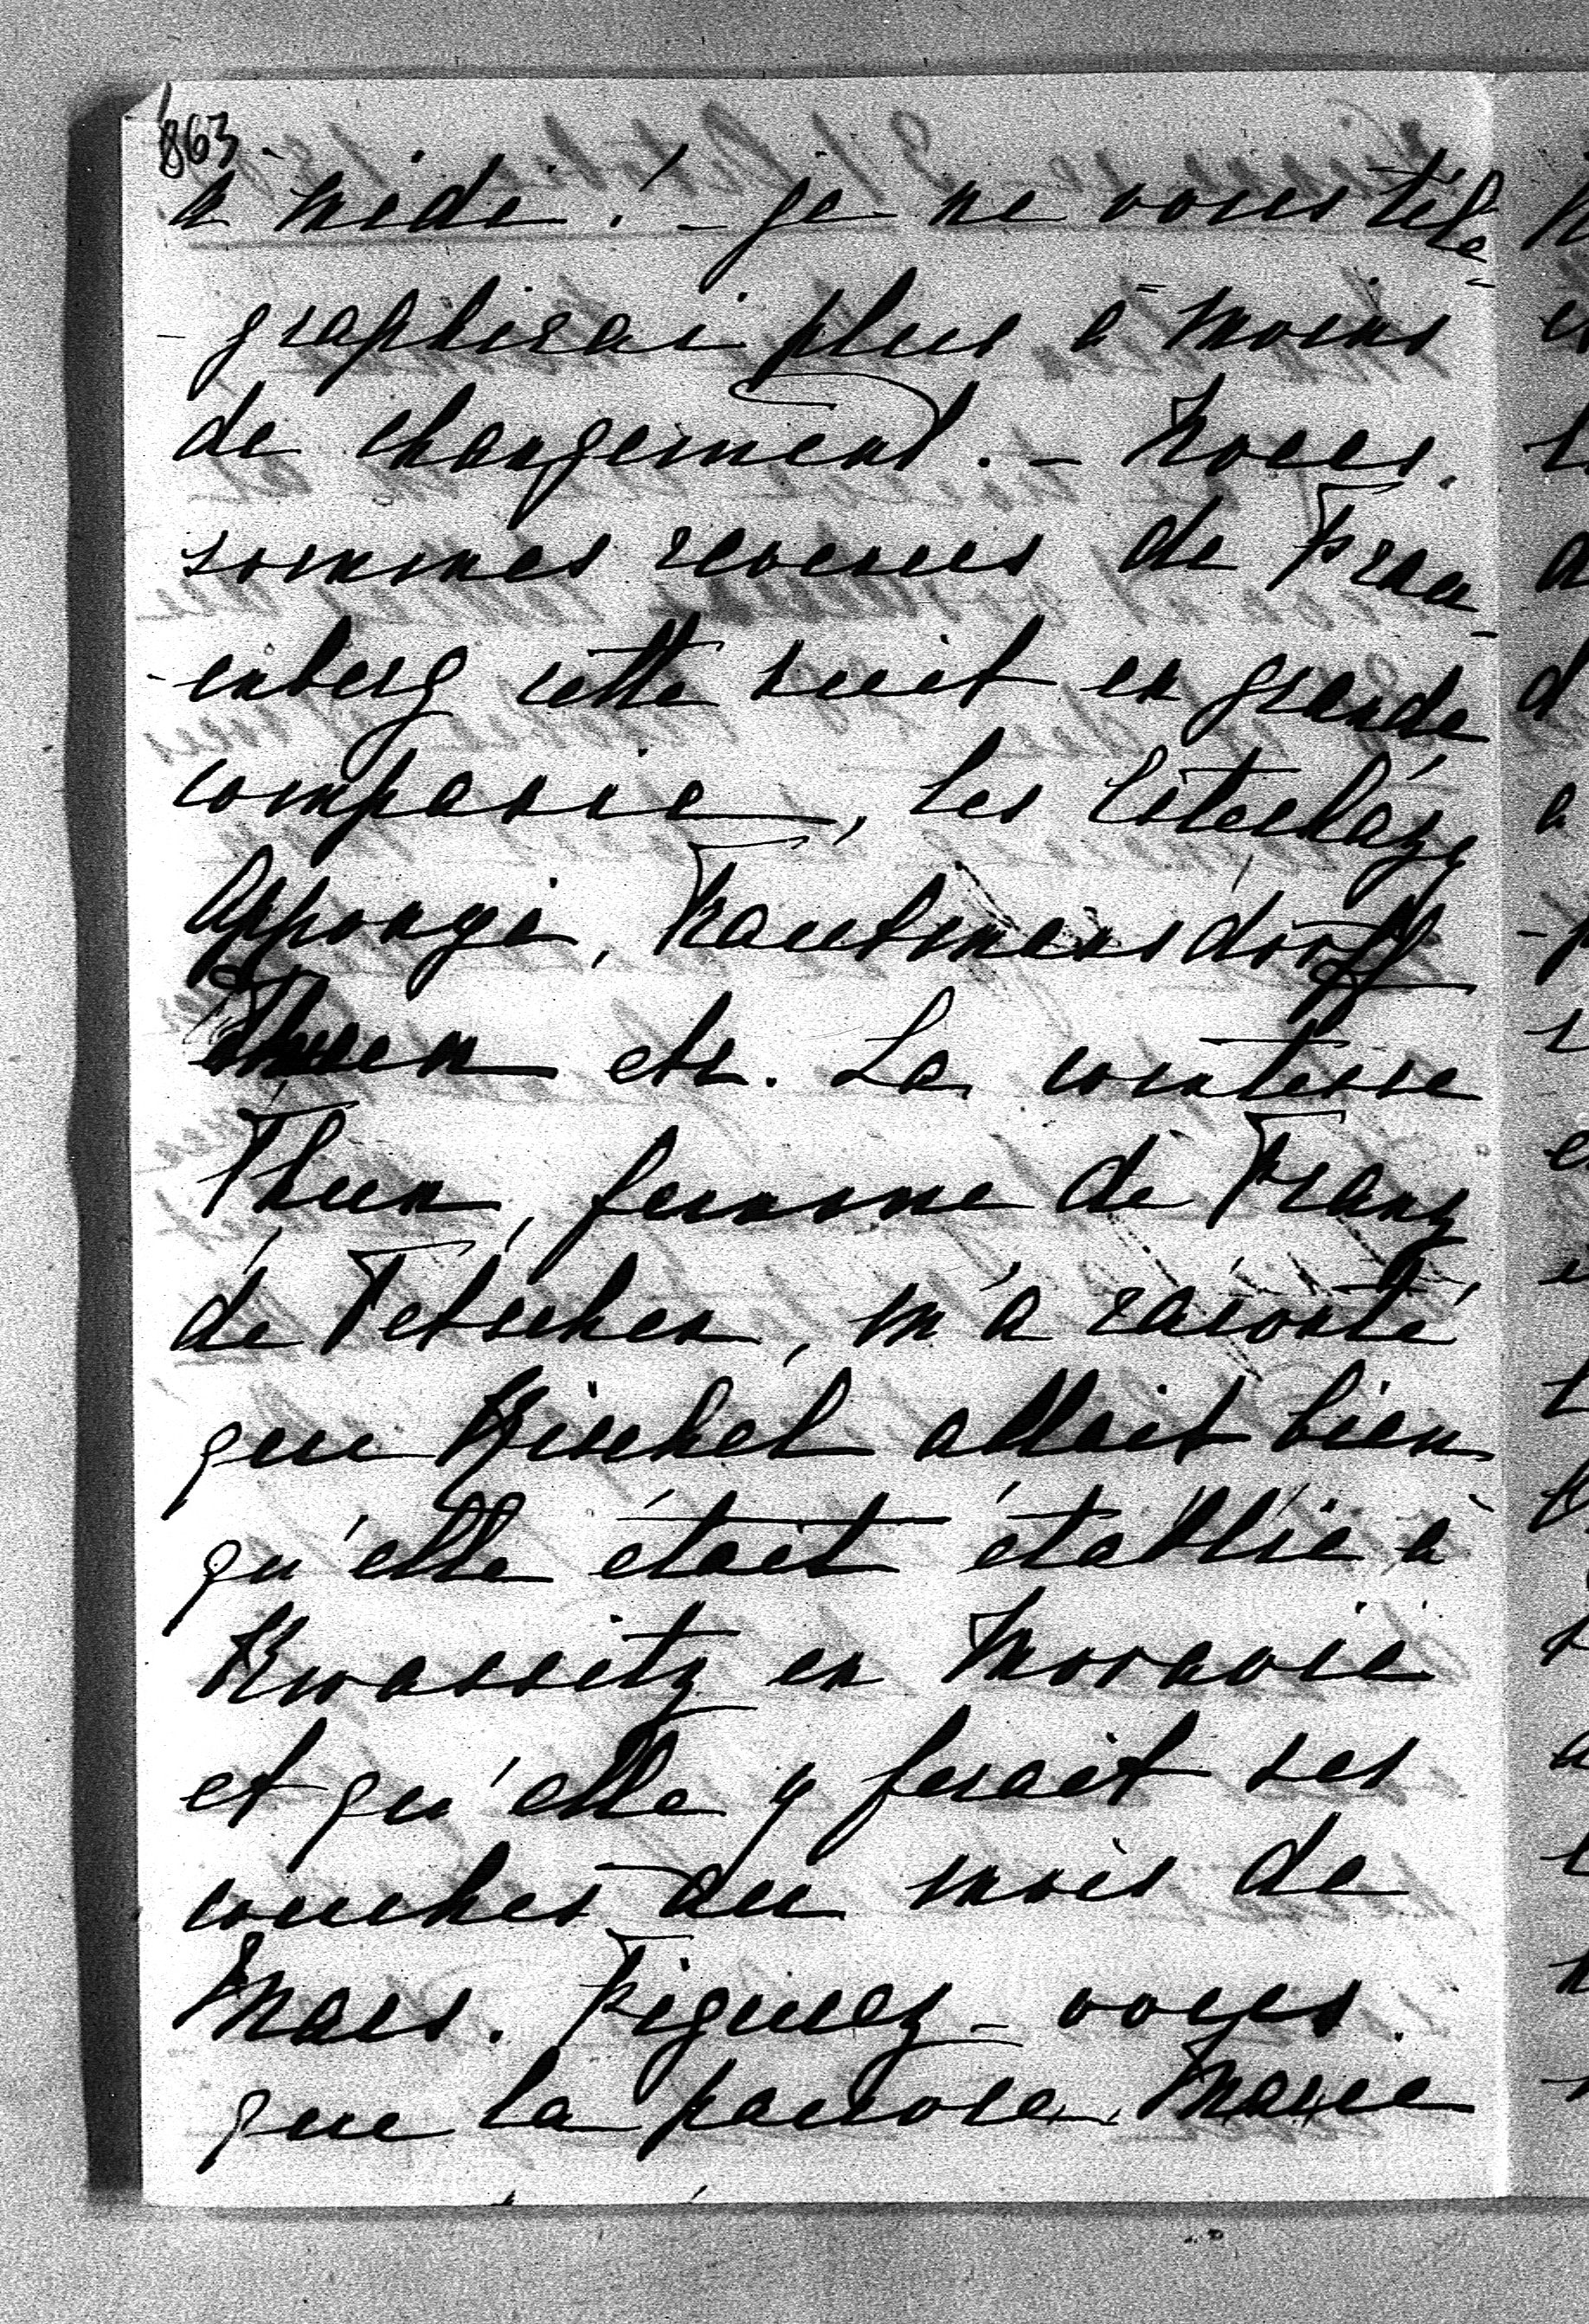 863
à midi! - je ne vous télé-
- grapherai plus à moins
de changement. - Nous
sommes revenus de Frau-
- enberg cette nuit en grande
companie, les Esterházy
Apponyi, Trautmansdorff
Thun etc. La comtesse
Thun, femme de Franz
de Tetschen, m'a raconté
que Kischel allait bien
qu'elle était établie à
Kwassitz en Moravie
et qu'elle y ferait ses
couches au mois de
Mars. Figurez-vous
que la pauvre Marie